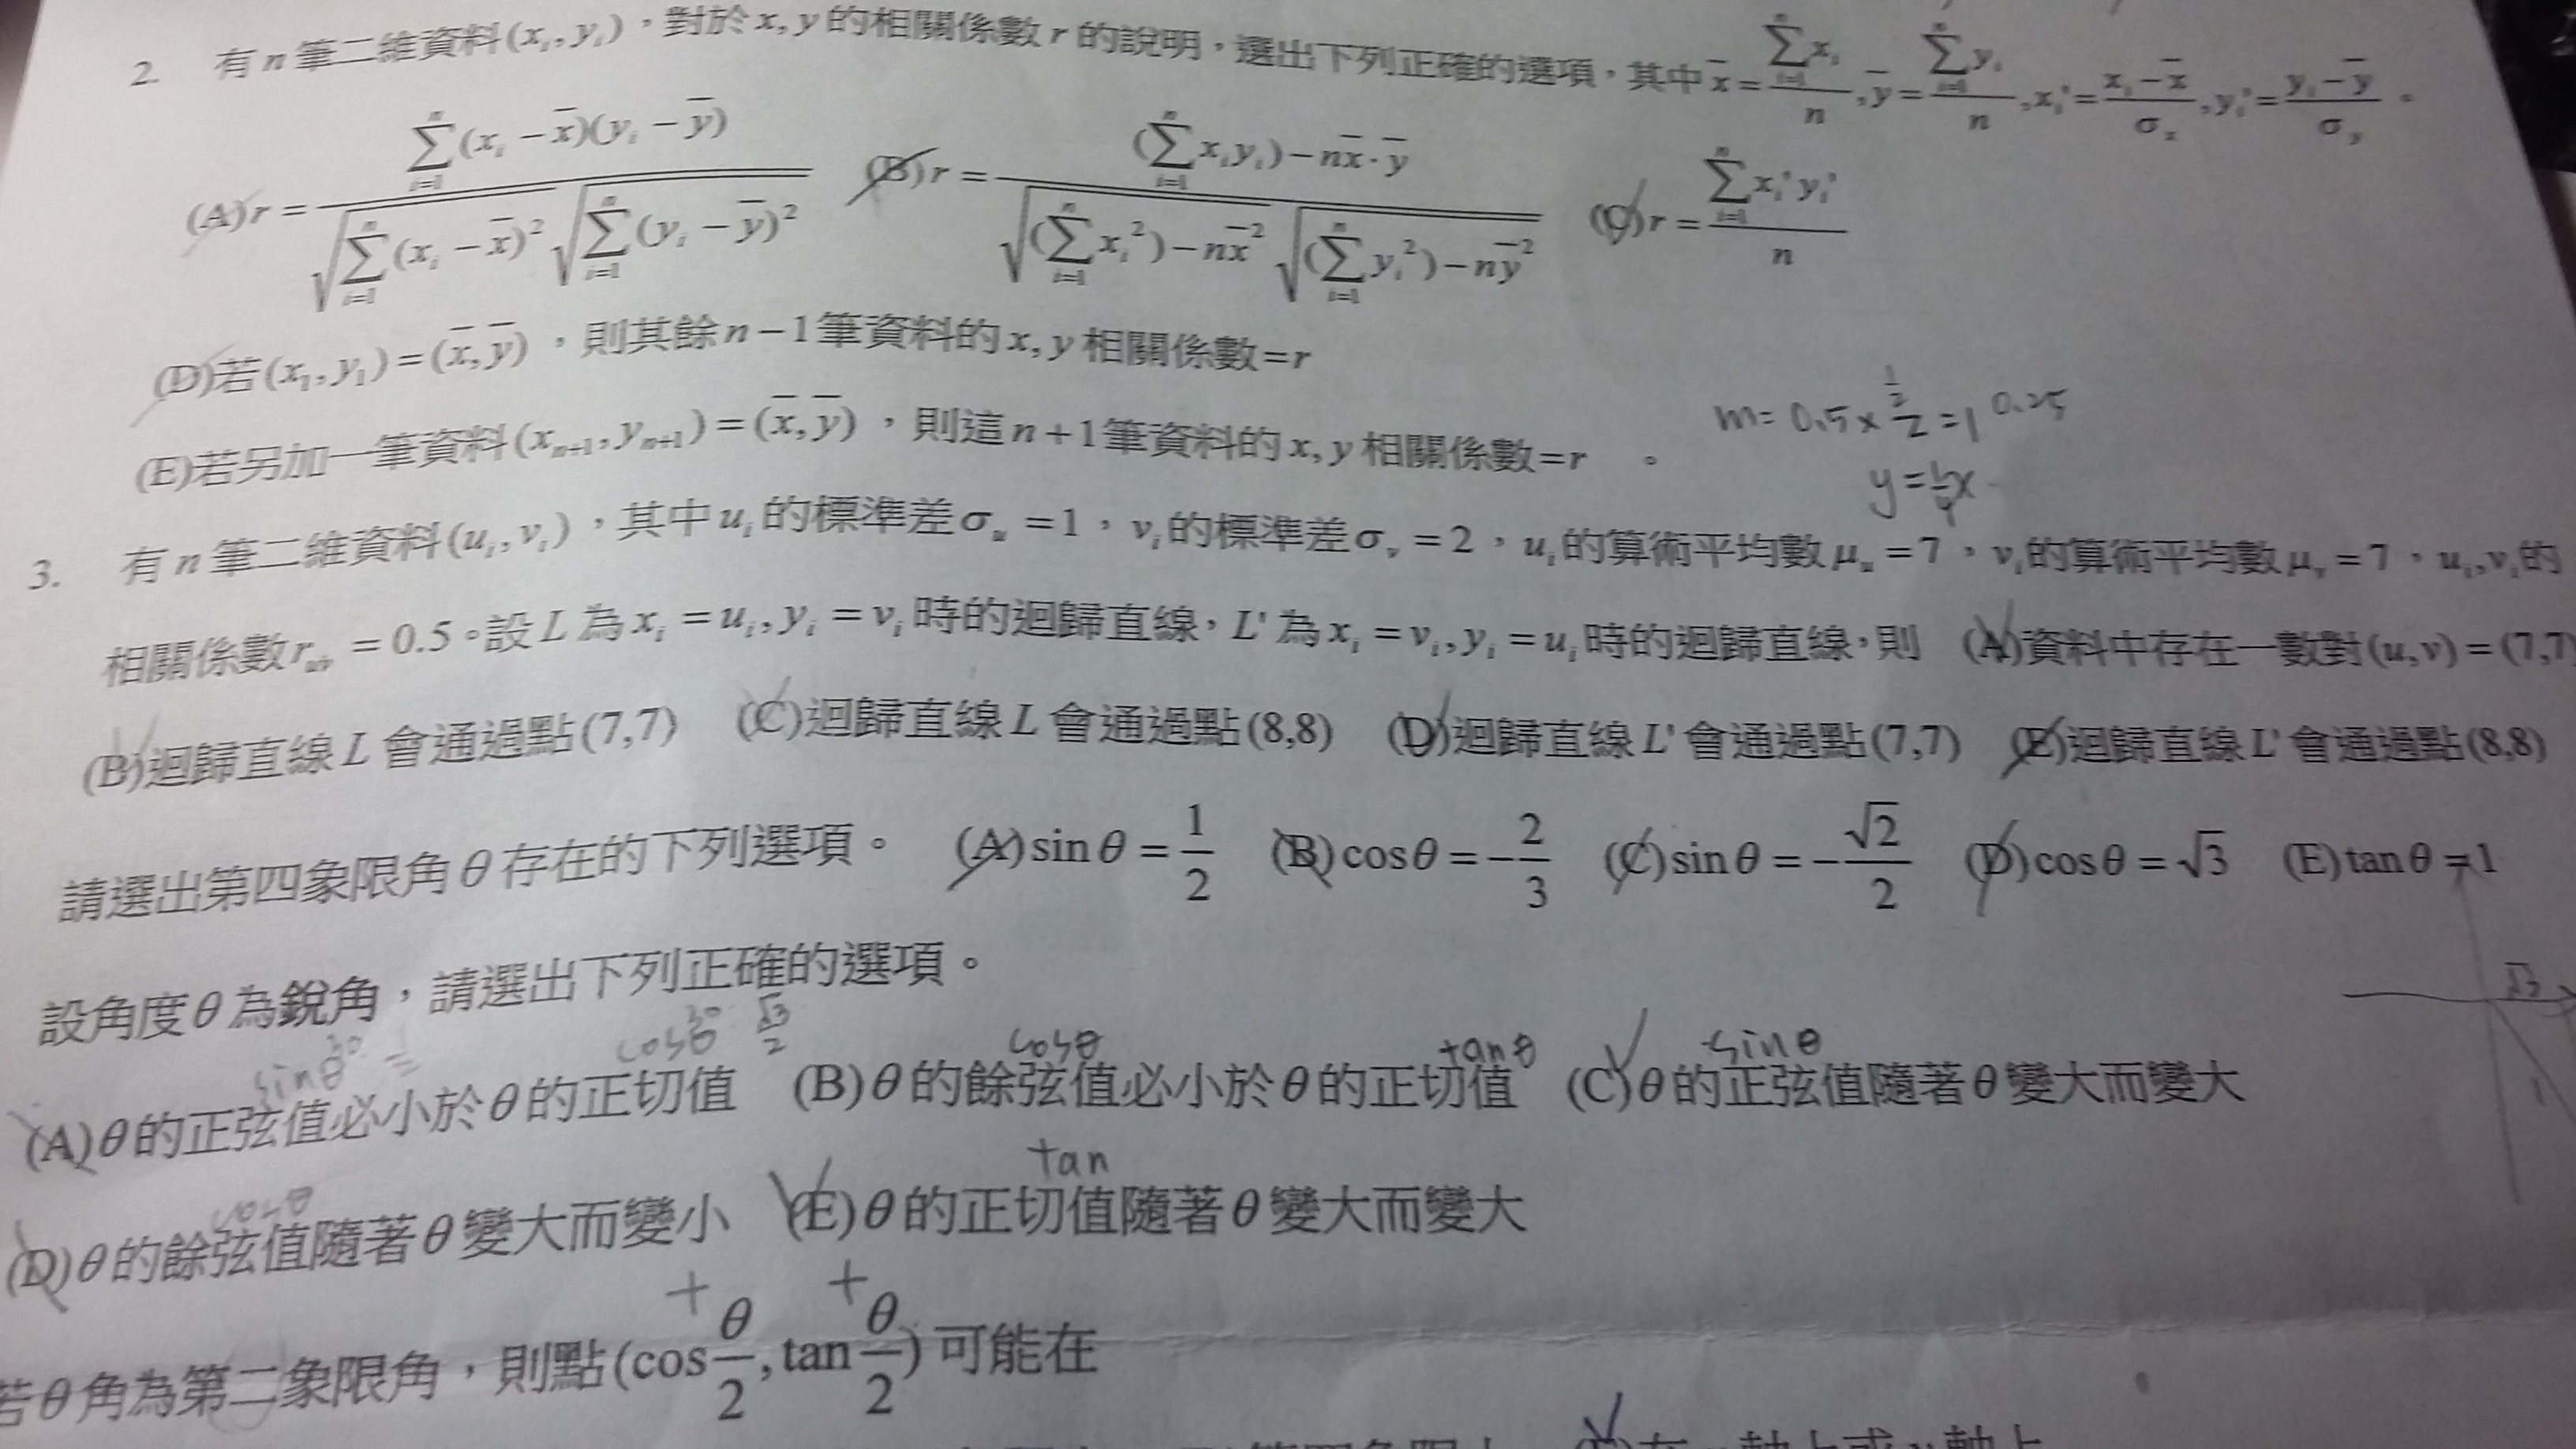 2. 有 n 筆二維資料(xᵢ, yᵢ)，對於 x, y 的相關係數 r 的說明，選出下列正確的選項，其中 x̄ = (∑ᵢ₌₁ⁿ xᵢ)/n, ȳ = (∑ᵢ₌₁ⁿ yᵢ)/n, xᵢ' = (xᵢ − x̄)/σₓ, yᵢ' = (yᵢ − ȳ)/σ_y。
(A) r = ∑ᵢ₌₁ⁿ(xᵢ − x̄)(yᵢ − ȳ) / (√(∑ᵢ₌₁ⁿ(xᵢ − x̄)²) √(∑ᵢ₌₁ⁿ(yᵢ − ȳ)²)) (B) r = ((∑ᵢ₌₁ⁿ xᵢyᵢ) − nx̄·ȳ) / (√((∑ᵢ₌₁ⁿ xᵢ²) − nx̄²) √((∑ᵢ₌₁ⁿ yᵢ²) − nȳ²)) (C) r = (∑ᵢ₌₁ⁿ xᵢ'yᵢ')/n
(D)若(x₁, y₁) = (x̄, ȳ)，則其餘 n − 1 筆資料的 x, y 相關係數 = r
(E)若另加一筆資料(xₙ₊₁, yₙ₊₁) = (x̄, ȳ)，則這 n + 1 筆資料的 x, y 相關係數 = r 。
m = 0.5 × 1/2 = 1 0.25
y = 1/4 x
3. 有 n 筆二維資料(uᵢ, vᵢ)，其中 uᵢ 的標準差 σᵤ = 1，vᵢ 的標準差 σᵥ = 2，uᵢ 的算術平均數 μᵤ = 7，vᵢ 的算術平均數 μᵥ = 7，uᵢ, vᵢ 的
相關係數 rᵤᵥ = 0.5。設 L 為 xᵢ = uᵢ, yᵢ = vᵢ 時的迴歸直線，L' 為 xᵢ = vᵢ, yᵢ = uᵢ 時的迴歸直線，則 (A)資料中存在一數對(u, v) = (7,7)
(B)迴歸直線 L 會通過點(7,7) (C)迴歸直線 L 會通過點(8,8) (D)迴歸直線 L' 會通過點(7,7) (E)迴歸直線 L' 會通過點(8,8)
請選出第四象限角 θ 存在的下列選項。 (A) sin θ = 1/2 (B) cos θ = −2/3 (C) sin θ = −√2/2 (D) cos θ = √3 (E) tan θ = 1
√3
1
設角度 θ 為銳角，請選出下列正確的選項。
sinθ 30 cosθ 30 √3/2 cosθ tanθ sinθ
(A) θ 的正弦值必小於 θ 的正切值 (B) θ 的餘弦值必小於 θ 的正切值 (C) θ 的正弦值隨著 θ 變大而變大
cosθ tan
(D) θ 的餘弦值隨著 θ 變大而變小 (E) θ 的正切值隨著 θ 變大而變大
+ +
若 θ 角為第二象限角，則點(cos θ/2, tan θ/2) 可能在